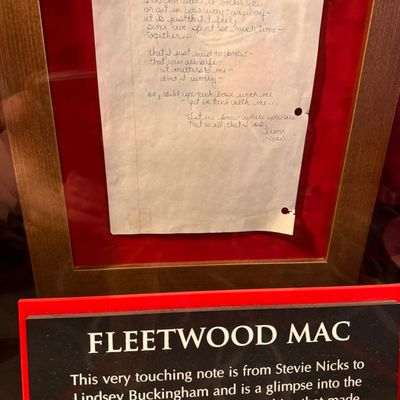 or act in any way - anyway -
it is just that I feel,
since we spend so much time -
together...
that I just need to know -
that you are safe -
it matters to me -
and I worry -
so, could you touch base with me -
get in touch with me...
Let me know where you are
that is all, that I ask,
from
FLEETWOOD MAC
This very touching note is from Stevie Nicks to
Lindsey Buckingham and is a glimpse into the
that made